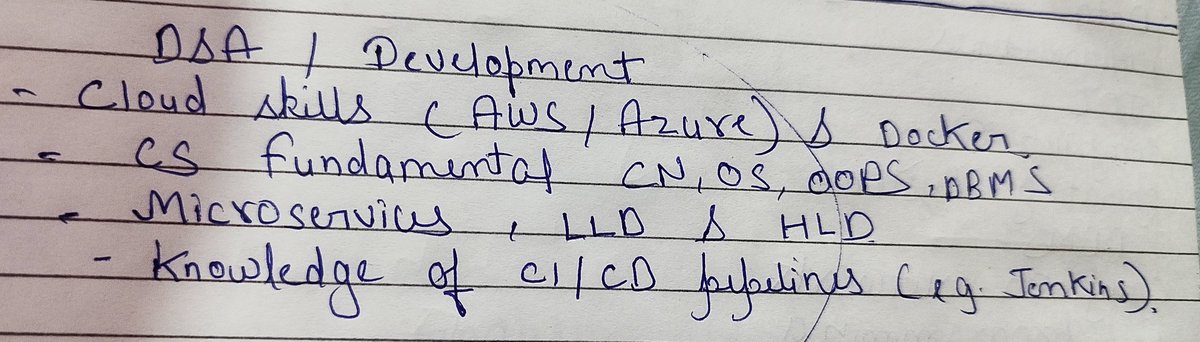 DSA / Development
- Cloud skills (AWS / Azure) & Docker
- CS fundamental CN, OS, OOPS, DBMS
- Microservices, LLD & HLD
- Knowledge of CI/CD pipelines (eg. Jenkins).